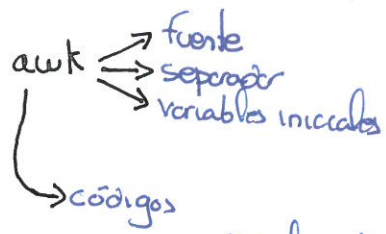 fuente
awk
separador
variables iniciales
códigos